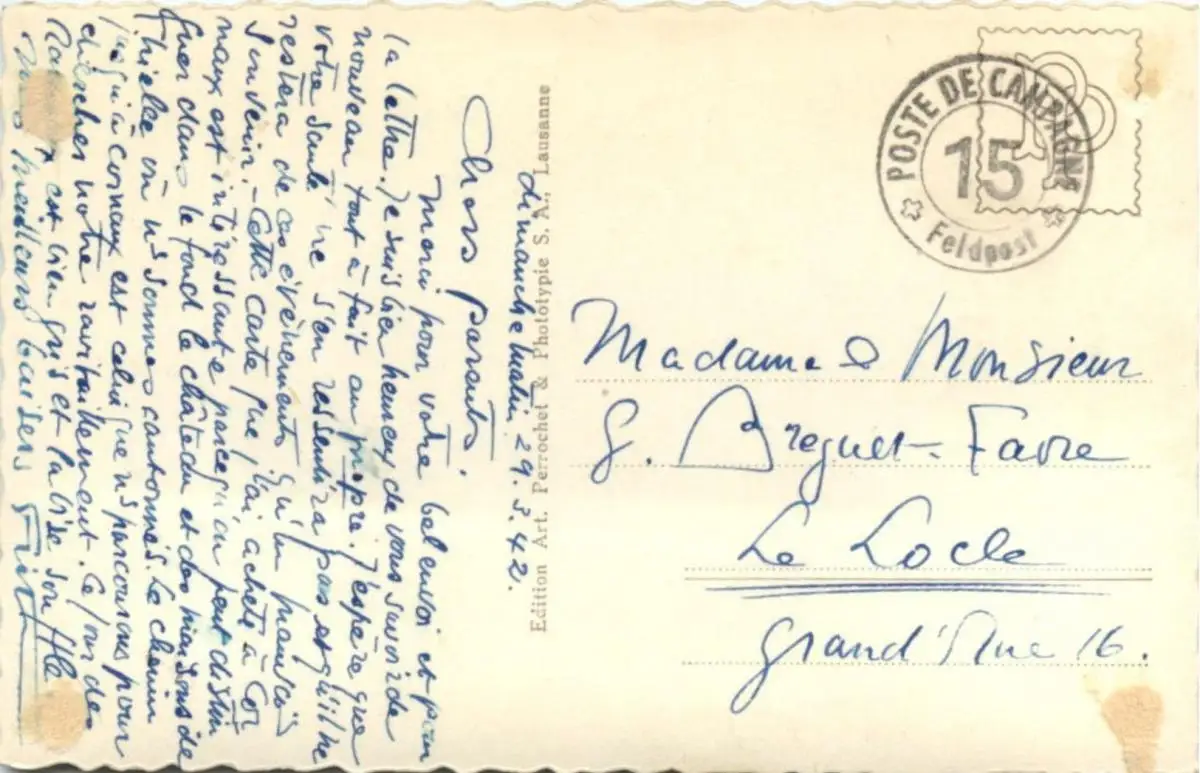 Dimanche matin 29.3.42.
Chers parents,
Merci pour votre bel envoi et pour
la lettre. Je suis bien heureux de vous savoir de
nouveau tout à fait au propre. J'espère que
votre santé ne s'en ressentira pas et qu'il ne
restera de ces événements qu'un mauvais
souvenir. - Cette carte que j'ai acheté à Cor
naux est intéressante parcequ'on peut distin
guer dans le fond le château et des maisons de
Thielle où ns sommes cantonnés. Le chemin
qui à Cornaux est celui que ns parcourons pour
chercher notre ravitaillement. Ce jour des
Rameaux est bien gris et la bise souffle
Mes meilleurs baisers
Edition Art. Perrochet & Phototypie S. A., Lausanne
POSTE DE CAMPAGNE
15
Feldpost
Madame & Monsieur
G. Breguet-Favre
Le Locle
Grand'Rue 16.